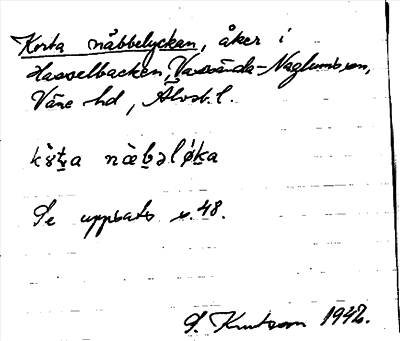 Korta näbbelyckan, åker i
Hasselbacken, Vassända-Naglums sn,
Väne hd, Älvsb. l.
näbəl
Se uppsats s. 48.
Knutsson 1942.